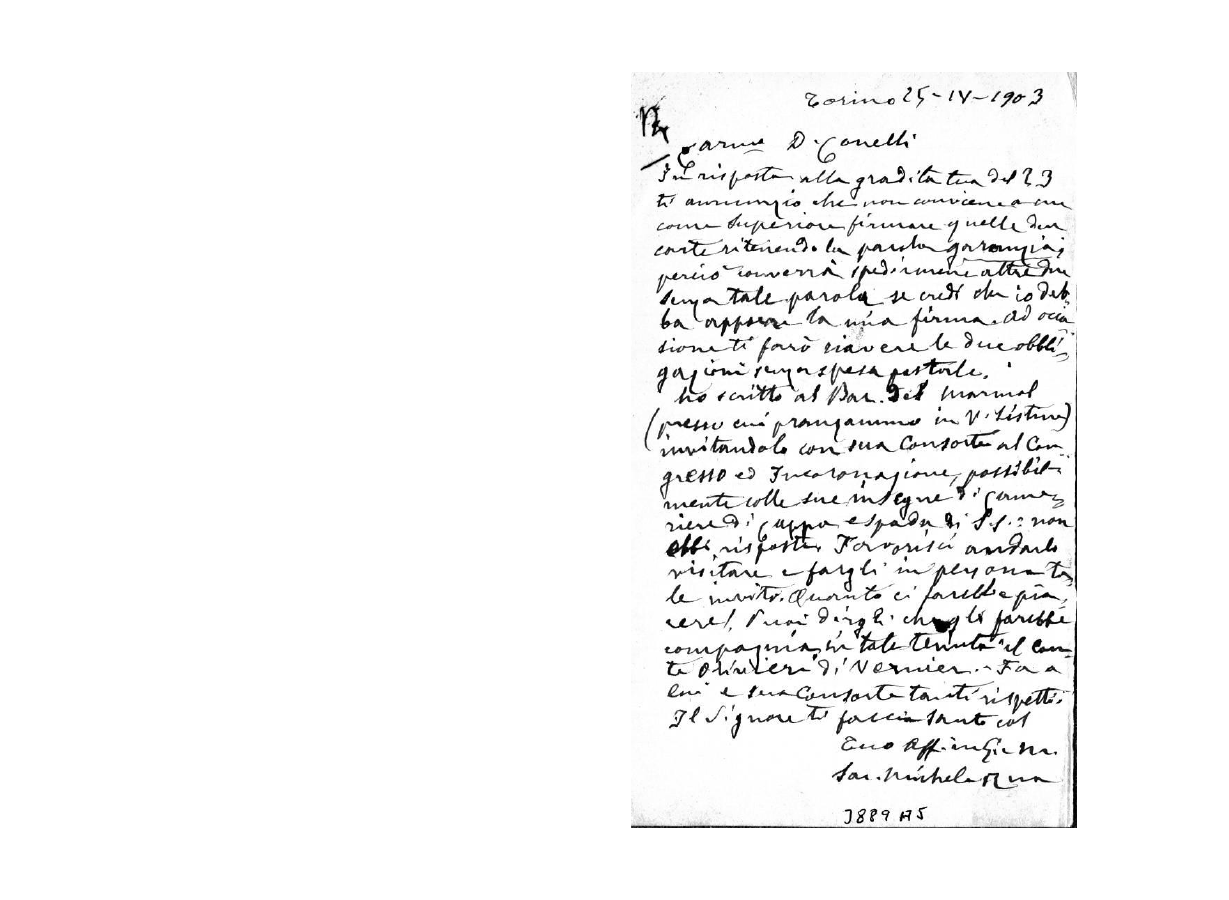 Torino 25-IV-1903
Carmo D. Conelli
In risposta alla gradita tua del 23
ti annunzio che non conviene a me
come Superiore firmare quelle due
carte ritenendo la parola garanzia;
perciò converrà spedirmene altre due
senza tale parola se credi che io deb-
ba apporre la mia firma. Ad occa
sione ti farò riavere le due obbli-
gazioni senza spesa postale.
ho scritto al Bar. Del Marmol
(presso cui pranzammo in V.
invitandolo con sua Consorte al Con-
gresso ed Incoronazione, possibil-
mente colle sue insegne di Came-
riere di Cappa e spada di S.S.: non
ebbi risposta. Favorisci andarlo
visitare e fargli in persona ta-
le invito. Quanto ci farebbe pia-
cere! Puoi dirgli che gli farebbe
compagnia in tale tenuta il Con-
te Olivieri di Vernier. Fa a
lui e sua Consorte tanti rispetti.
Il Signore ti faccia santo col
Tuo Aff. in G. e M.
Sac. Michele Rua
3889 A5